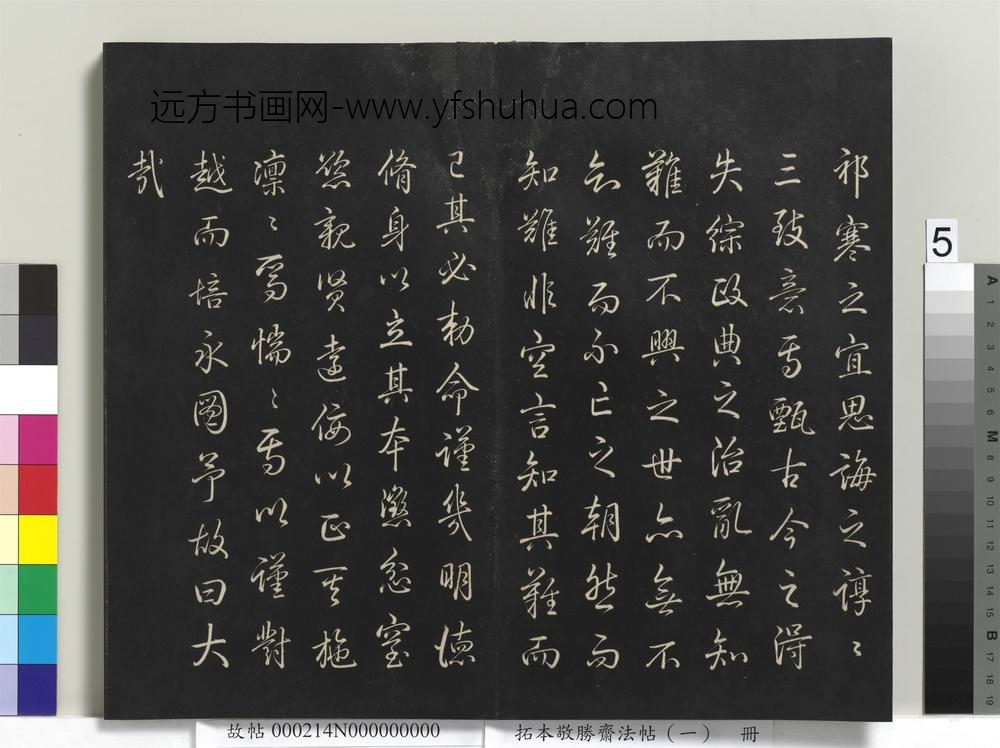 远方书画网-www.yfshuhua.com
祁寒之宜思誨之諄〻
三致意焉甄古今之得
失綜政典之治亂無知
難而不興之世亦無不
知難而不亡之朝然而
知難非空言知其難而
已其必勅命謹幾明德
脩身以立其本懲忿窒
慾親賢遠佞以正其施
凜〻焉惴〻焉以謹對
越而培永圖予故曰大
哉
5
A 1 2 3 4 5 6 M 8 9 10 11 12 13 14 15 B 17 18 19
故帖 000214N000000000
拓本敬勝齋法帖（一） 冊